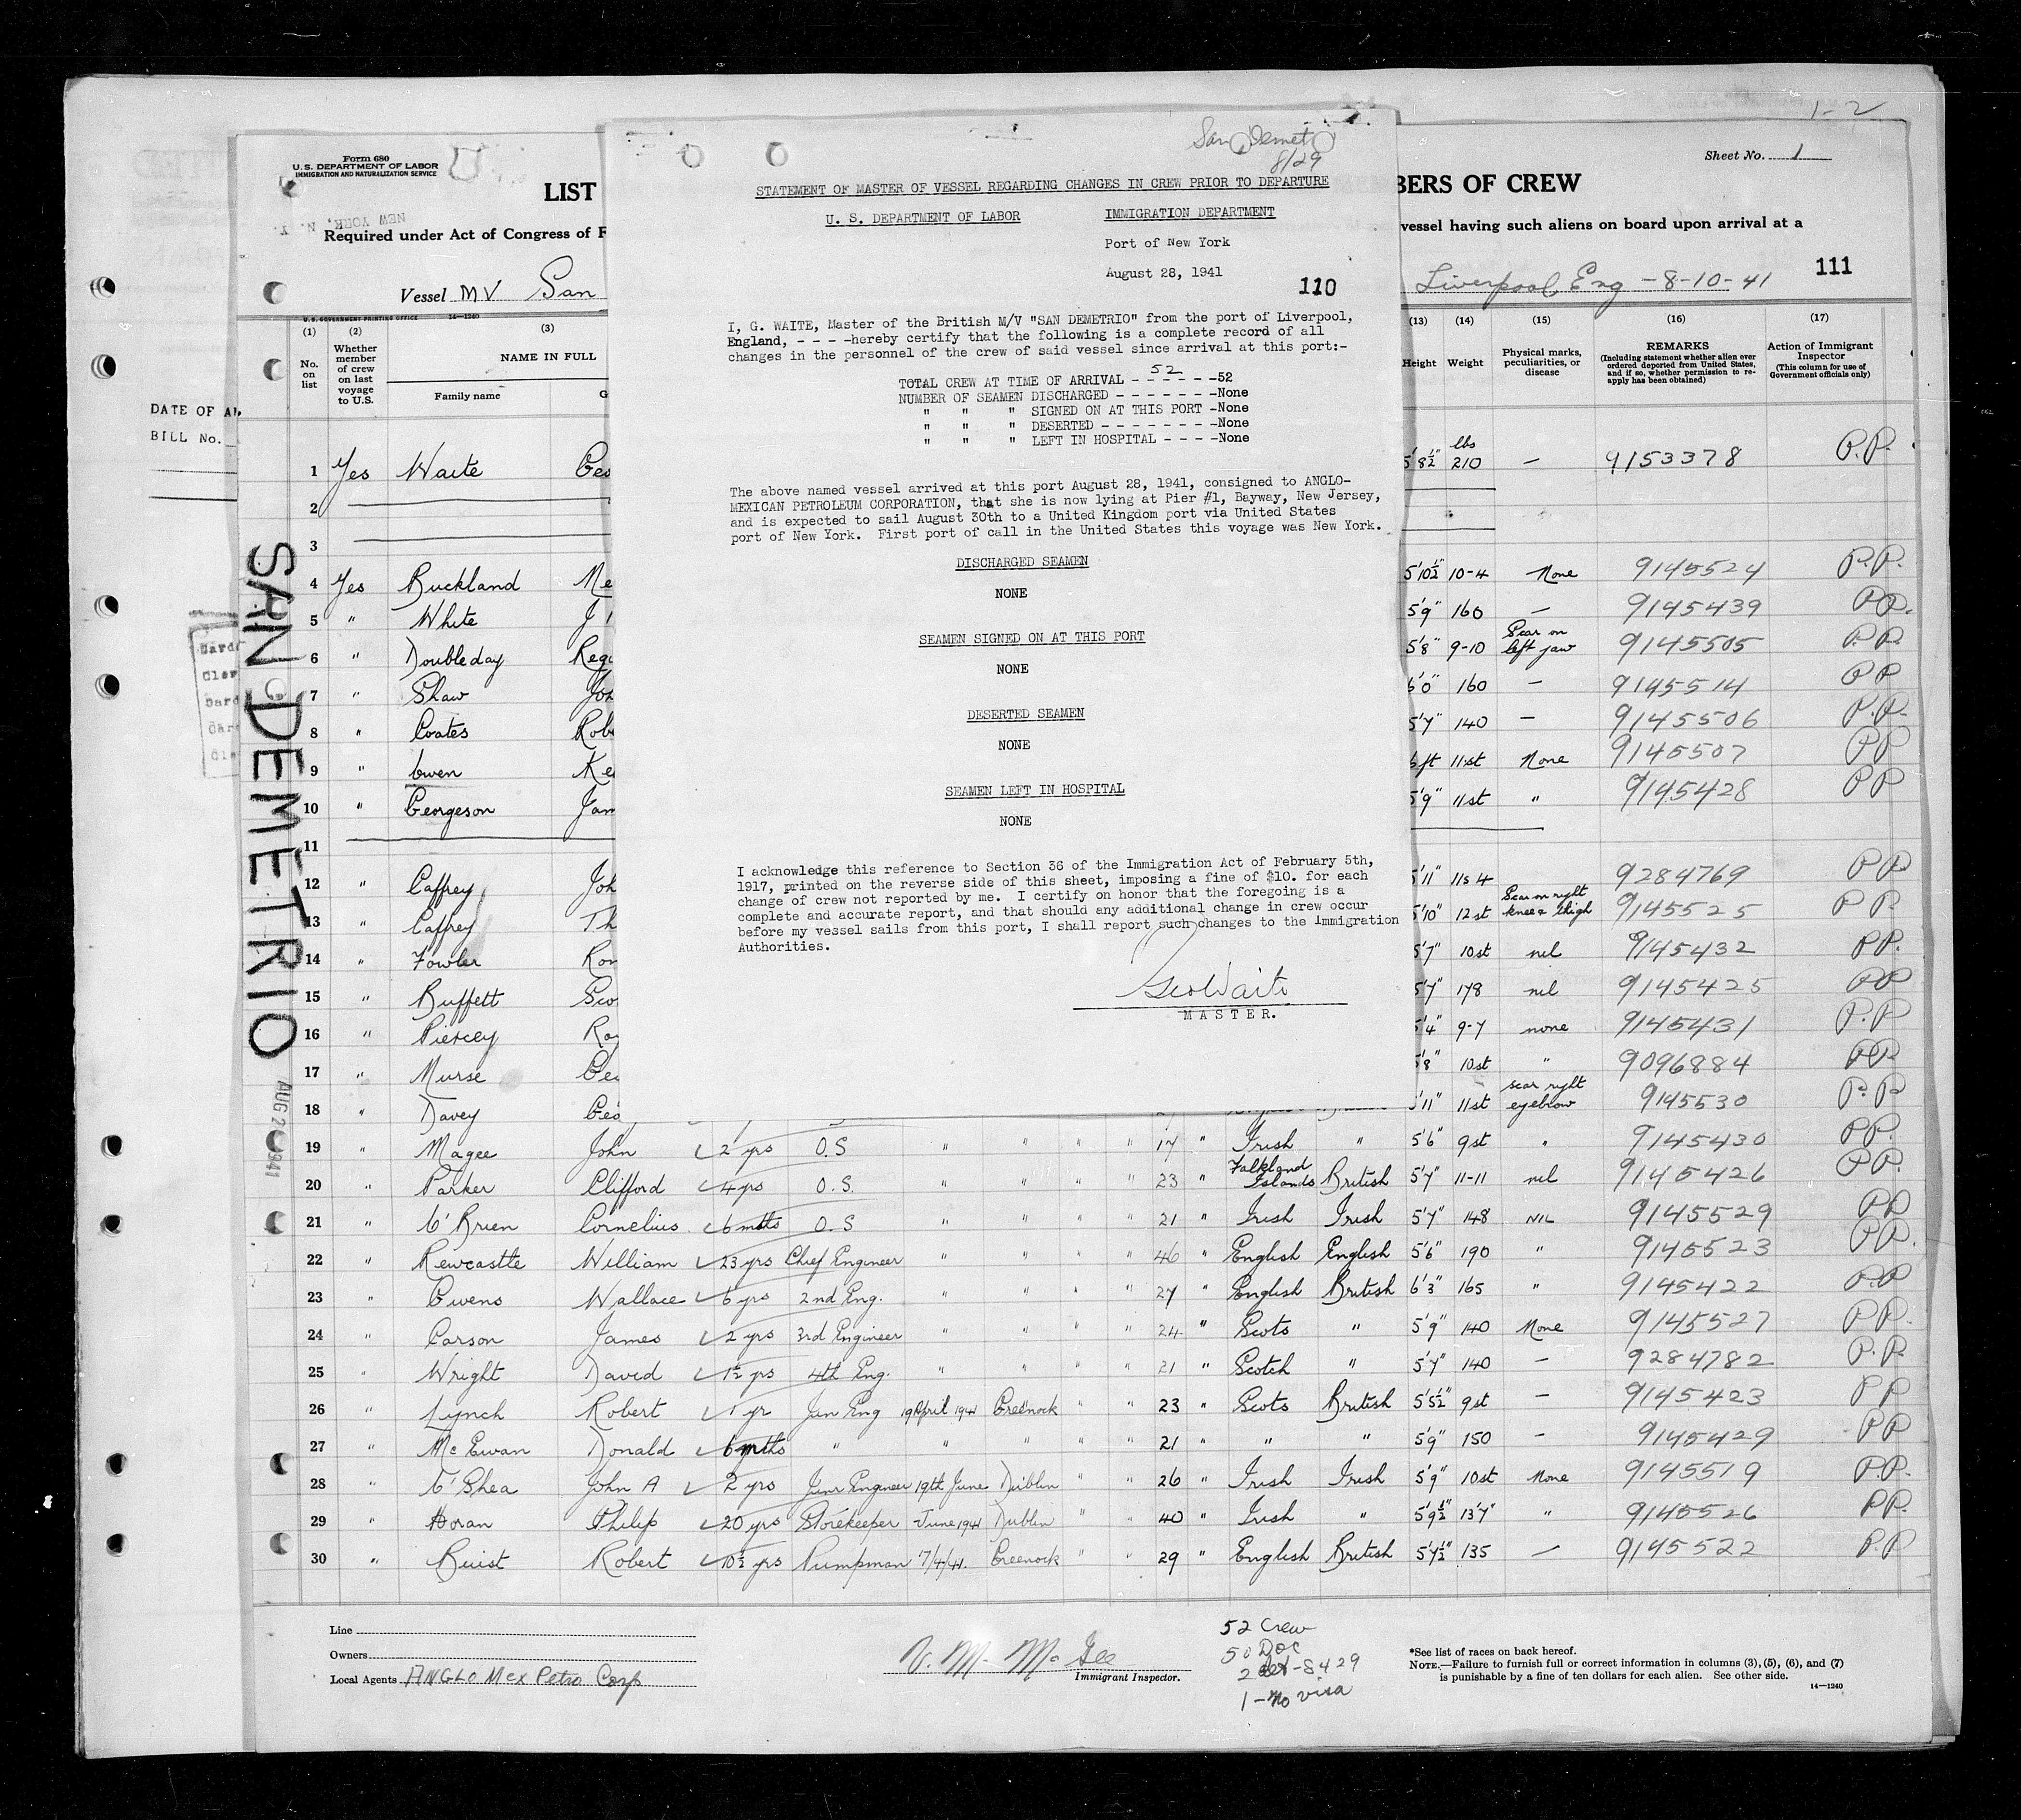 1-2
Form 680
U. S. DEPARTMENT OF LABOR
IMMIGRATION AND NATURALIZATION SERVICE
NEW YORK, N. Y.
LIST
BERS OF CREW
Sheet No. 1
Required under Act of Congress of F
vessel having such aliens on board upon arrival at a
Vessel MV San
Liverpool Eng - 8-10-41
111
U. S. GOVERNMENT PRINTING OFFICE 14-1240
DATE OF
BILL No.
SAN DEMETRIO
San Demet
8/29
STATEMENT OF MASTER OF VESSEL REGARDING CHANGES IN CREW PRIOR TO DEPARTURE
U. S. DEPARTMENT OF LABOR IMMIGRATION DEPARTMENT
Port of New York
August 28, 1941
110
I, G. WAITE, Master of the British M/V "SAN DEMETRIO" from the port of Liverpool,
England, - - - -hereby certify that the following is a complete record of all
changes in the personnel of the crew of said vessel since arrival at this port:-
52
TOTAL CREW AT TIME OF ARRIVAL - - - - - -52
NUMBER OF SEAMEN DISCHARGED - - - - - - -None
" " " SIGNED ON AT THIS PORT -None
" " " DESERTED - - - - - - - -None
" " " LEFT IN HOSPITAL - - - -None
The above named vessel arrived at this port August 28, 1941, consigned to ANGLO-
MEXICAN PETROLEUM CORPORATION, that she is now lying at Pier #1, Bayway, New Jersey,
and is expected to sail August 30th to a United Kingdom port via United States
port of New York. First port of call in the United States this voyage was New York.
DISCHARGED SEAMEN
NONE
SEAMEN SIGNED ON AT THIS PORT
NONE
DESERTED SEAMEN
NONE
SEAMEN LEFT IN HOSPITAL
NONE
I acknowledge this reference to Section 36 of the Immigration Act of February 5th,
1917, printed on the reverse side of this sheet, imposing a fine of $10. for each
change of crew not reported by me. I certify on honor that the foregoing is a
complete and accurate report, and that should any additional change in crew occur
before my vessel sails from this port, I shall report such changes to the Immigration
Authorities.
Geo Waite
MASTER.
(1) (2) (3) (13) (14) (15) (16) (17)
No. on list
Whether member of crew on last voyage to U.S.
NAME IN FULL
Family name G
Height Weight
Physical marks, peculiarities, or disease
REMARKS
(Including statement whether alien ever ordered deported from United States, and if so, whether permission to reapply has been obtained)
Action of Immigrant Inspector
(This column for use of Government officials only)
1 Yes Waite Geo 5'8½" lbs 210 — 9153378 P.P.
2
3
4 Yes Buckland Me 5'10½" 10-4 None 9145524 P.P.
5 " White J 5'9" 160 — 9145439 PP.
6 " Doubleday Regi 5'8" 9-10 Scar on left jaw 9145505 P.P.
7 " Shaw Joh 6'0" 160 — 9145514 PP
8 " Coates Robe 5'7" 140 — 9145506 P.P.
9 " Owen Ke 6ft 11st None 9145507 PP
10 " Georgeson Jam 5'9" 11st " 9145428 PP
11
12 " Caffrey Joh 5'11" 11s 4 9284769 PP
13 " Caffrey Th 5'10" 12st Scar on right knee & thigh 9145525 PP
14 " Fowler Ron 5'7" 10st nil 9145432 PP.
15 " Buffett Geo 5'7" 178 nil 9145425 PP
16 " Piercey Ray 5'4" 9-7 none 9145431 P.P
17 " Murse Geo 5'8" 10st " 9096884 PP
18 " Davey Geo 5'11" 11st scar right eyebrow 9145530 P.P
19 " Magee John 2 yrs O.S " " " " 17 " Irish " 5'6" 9st " 9145430 PP.
20 " Parker Clifford 4yrs O.S. " " " " 23 " Falkland Islands British 5'7" 11-11 nil 9145426 PP.
21 " O'Brien Cornelius 6 mths O.S " " " " 21 " Irish Irish 5'7" 148 NIL 9145529 PP
22 " Newcastle William 23 yrs Chief Engineer " " " " 46 " English English 5'6" 190 " 9145523 PP.
23 " Owens Wallace 6 yrs 2nd Eng. " " " " 27 " English British 6'3" 165 " 9145422 P.P
24 " Carson James 2 yrs 3rd Engineer " " " " 24 " Scots " 5'9" 140 None 9145527 PP.
25 " Wright David 1½ yrs 4th Eng. " " " " 21 " Scotch " 5'7" 140 — 9284782 P.P.
26 " Lynch Robert 1 yr Jun Eng 19 April 1941 Greenock " " 23 " Scots British 5'5½" 9st — 9145423 PP
27 " McEwan Donald 6 mths " " " " " 21 " " " 5'9" 150 — 9145429 PP
28 " O'Shea John A 2 yrs Junr Engineer 19th June Dublin " " 26 " Irish Irish 5'9" 10st None 9145519 P.P.
29 " Horan Philip 20 yrs Storekeeper June 1941 Dublin " " 40 " Irish " 5'9½" 13'7" " 9145526 PP.
30 " Buist Robert 10½ yrs Pumpman 7/4/41. Greenock " " 29 " English British 5'7½" 135 — 9145522 P.P
Line
Owners
Local Agents ANGLO Mex Petro Corp
V. M. McGee
Immigrant Inspector.
52 Crew
50 Doc
2 -8429
1 - No visa
*See list of races on back hereof.
NOTE.—Failure to furnish full or correct information in columns (3), (5), (6), and (7)
is punishable by a fine of ten dollars for each alien. See other side.
14—1240